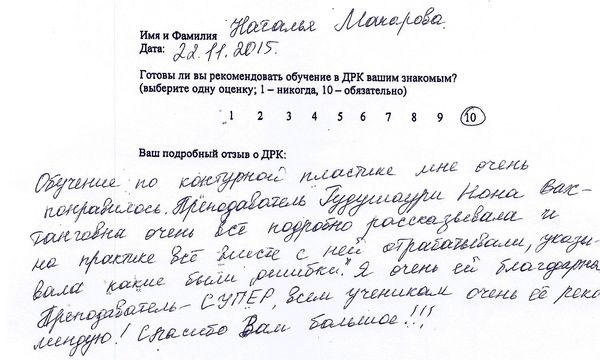 Имя и Фамилия Наталья Макарова.
Дата: 22.11.2015.
Готовы ли вы рекомендовать обучение в ДРК вашим знакомым?
(выберите одну оценку; 1 – никогда, 10 – обязательно)
1 2 3 4 5 6 7 8 9 10
Ваш подробный отзыв о ДРК:
Обучение по контурной пластике мне очень
понравилось. Преподаватель Гудушаури Нона Вах-
танговна очень всё подробно рассказывала и
на практике всё вместе с ней отрабатывали, указы-
вала какие были ошибки. Я очень ей благодарна
Преподаватель – СУПЕР, всем ученикам очень её реко
мендую! Спасибо Вам большое!!!